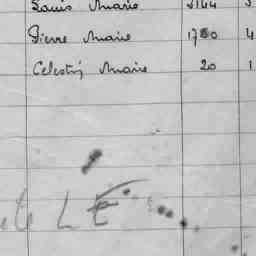 Louis Marie 3144 3
Pierre Marie 1780 4
Celestin Marie 20 1
LE